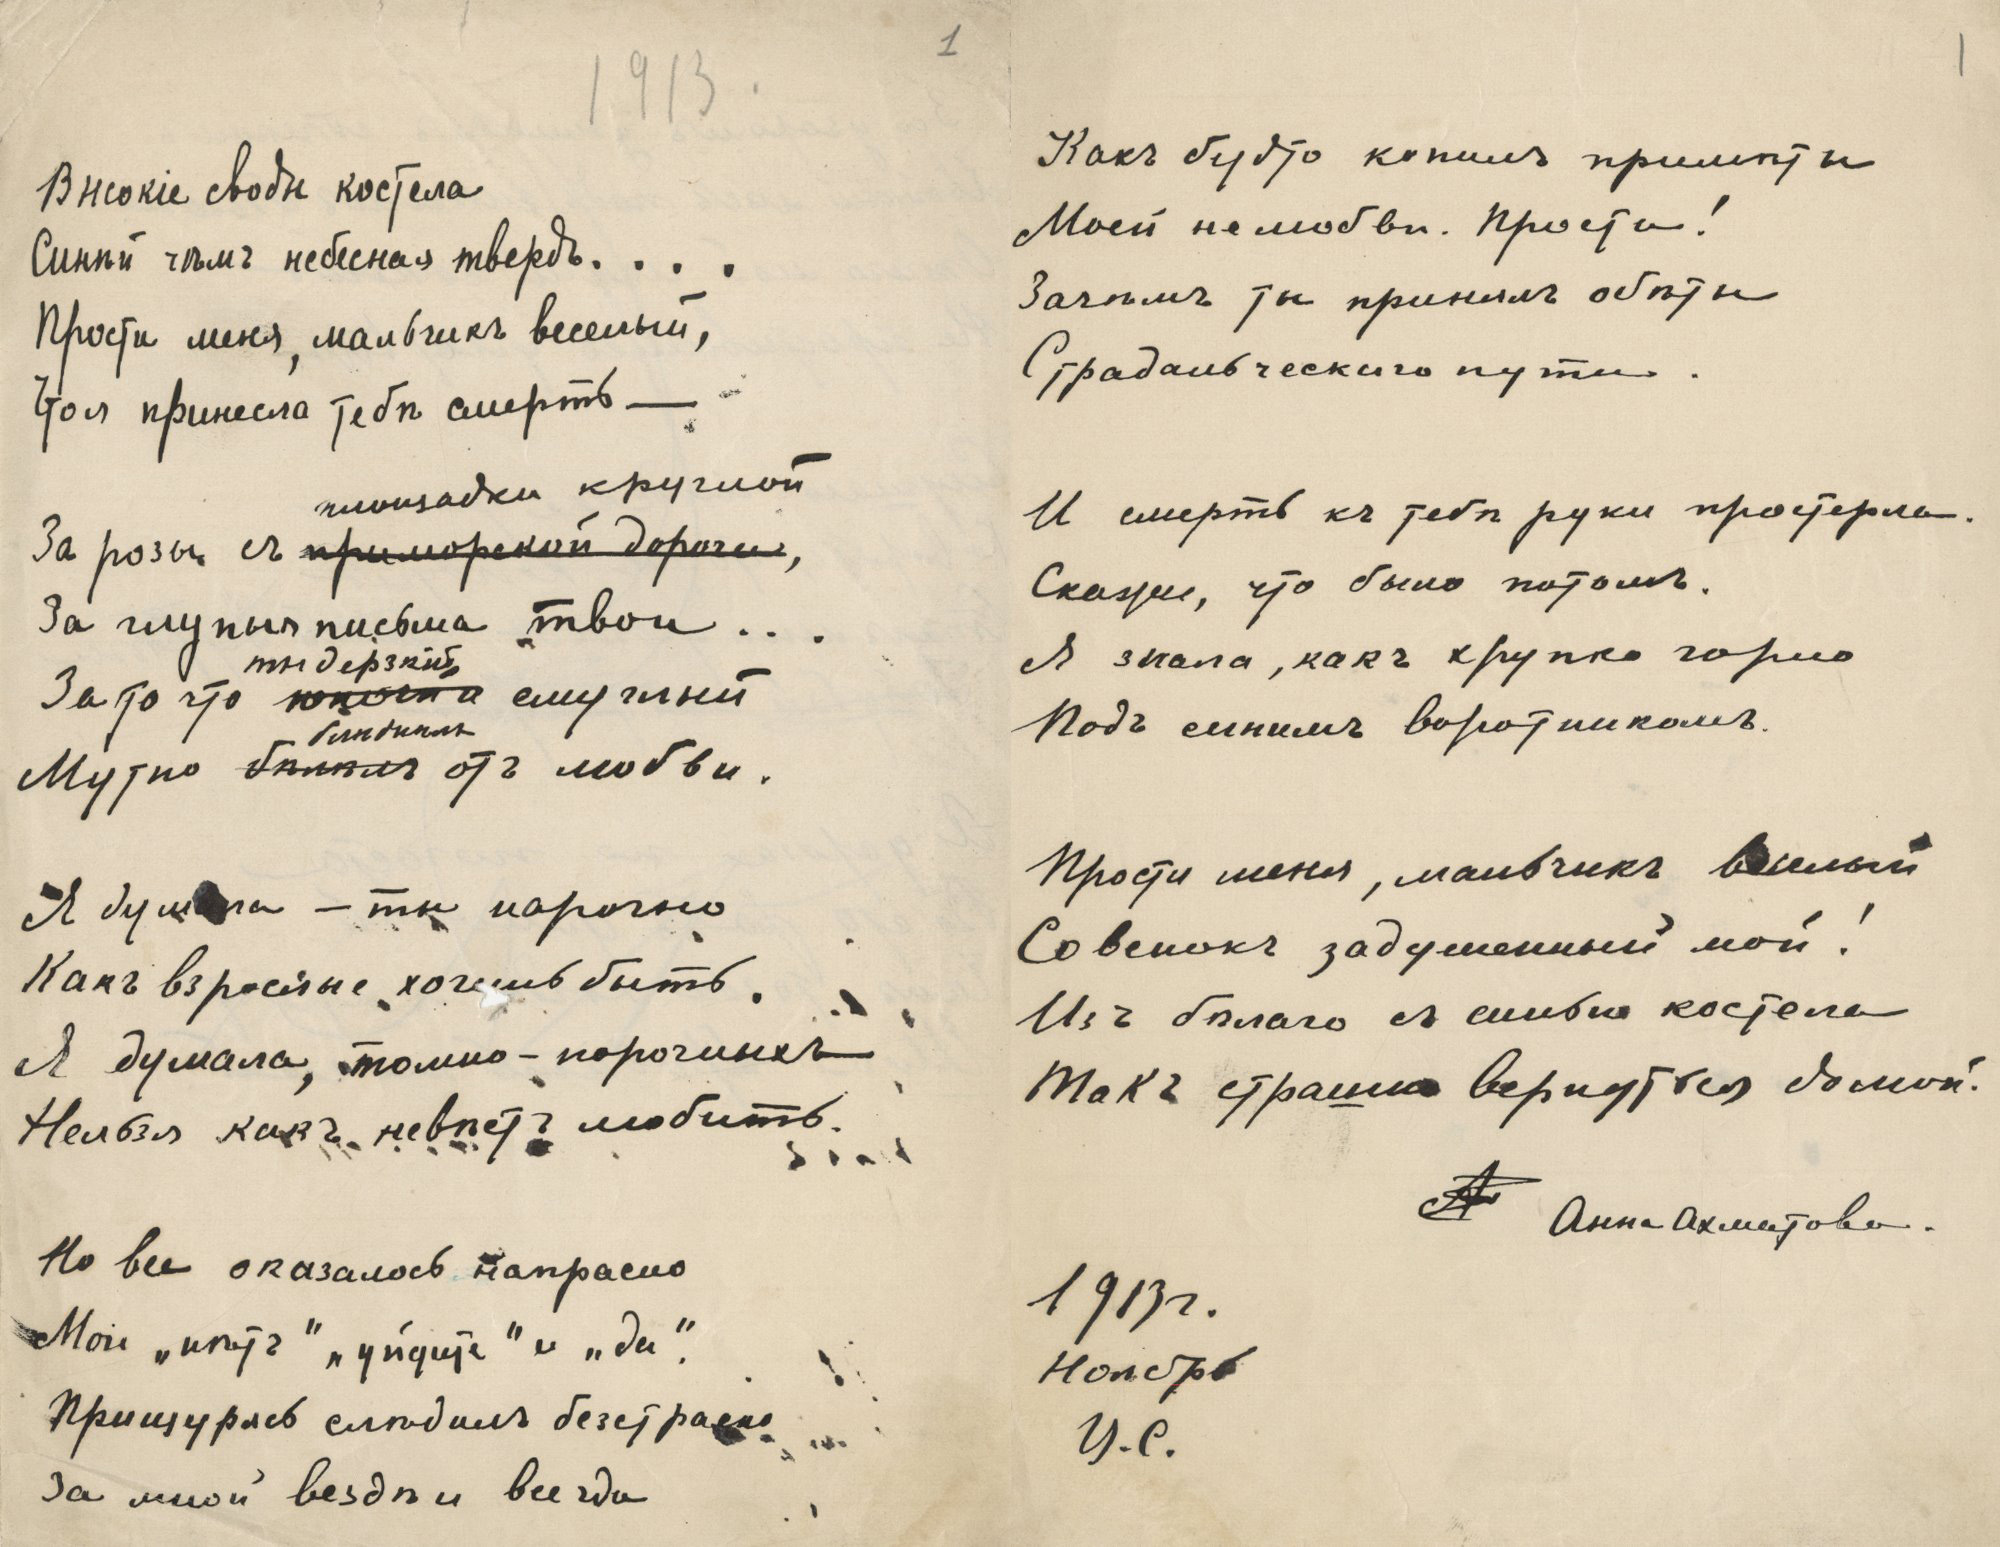 1913.
1
Высокіе своды костела
Синѣй чѣмъ небесная твердь. . . .
Прости меня, мальчикъ веселый,
Что я принесла тебѣ смерть —
площадки круглой
За розы съ приморской дороги,
За глупыя письма твои . . .
ты дерзкій
За то что смуглый
блѣднѣлъ
Мутно бѣлѣлъ отъ любви.
Я думала – ты нарочно
Какъ взрослые хочешь быть.
Я думала, томно-порочныхъ
Нельзя какъ невѣстъ любить.
Но все оказалось напрасно
Мои „нѣтъ" „уйдите" и „да".
Прищурясь слѣдилъ безстрасно
За мной вездѣ и всегда
1
Какъ будто копилъ примѣты
Моей нелюбви. Прости!
Зачѣмъ ты принялъ обѣты
Страдальческаго пути.
И смерть къ тебѣ руки простерла.
Скажи, что было потомъ.
Я знала, какъ хрупко горло
Подъ синимъ воротникомъ.
Прости меня, мальчикъ веселый
Совенокъ задушенный мой!
Изъ бѣлаго съ синью костела
Такъ страшно вернуться домой.
Анна Ахматова.
1913 г.
Ноябрь
Ц.С.